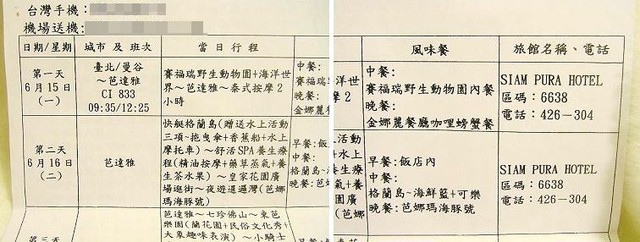 台灣手機:
機場送機:
日期/星期
城市 及 班次
當日行程
第一天
6月15日
(一)
臺北/曼谷
～芭達雅
CI 833
09:35/12:25
賽福瑞野生動物園+海洋世
界～芭達雅～泰式按摩2
小時
中餐:
賽福瑞
晚餐:
金娜麗
第二天
6月16日
(二)
芭達雅
快艇格蘭島(贈送水上活動
三項~拖曳傘+香蕉船+水上
摩托車)～舒活SPA養生療
程(精油按摩+藥草蒸氣+養
生茶水果)～皇家花園廣
場逛街～夜遊暹邏灣(芭娜
瑪海豚號)
早餐:
中餐:
格蘭島
晚餐:芭
第三天
芭達雅～七珍佛山～東芭
樂園(蘭花園+民俗文化秀+
大象趣味表演)～小騎士
風味餐
旅館名稱、電話
海洋世
摩2
中餐:
賽福瑞野生動物園內餐
晚餐:
金娜麗餐廳咖哩螃蟹餐
SIAM PURA HOTEL
區碼:6638
電話:426-304
活動
+水上
養生療
氣+養
園廣
(芭娜
早餐:飯店內
中餐:
格蘭島～海鮮籃+可樂
晚餐:芭娜瑪海豚號
SIAM PURA HOTEL
區碼:6638
電話:426-304